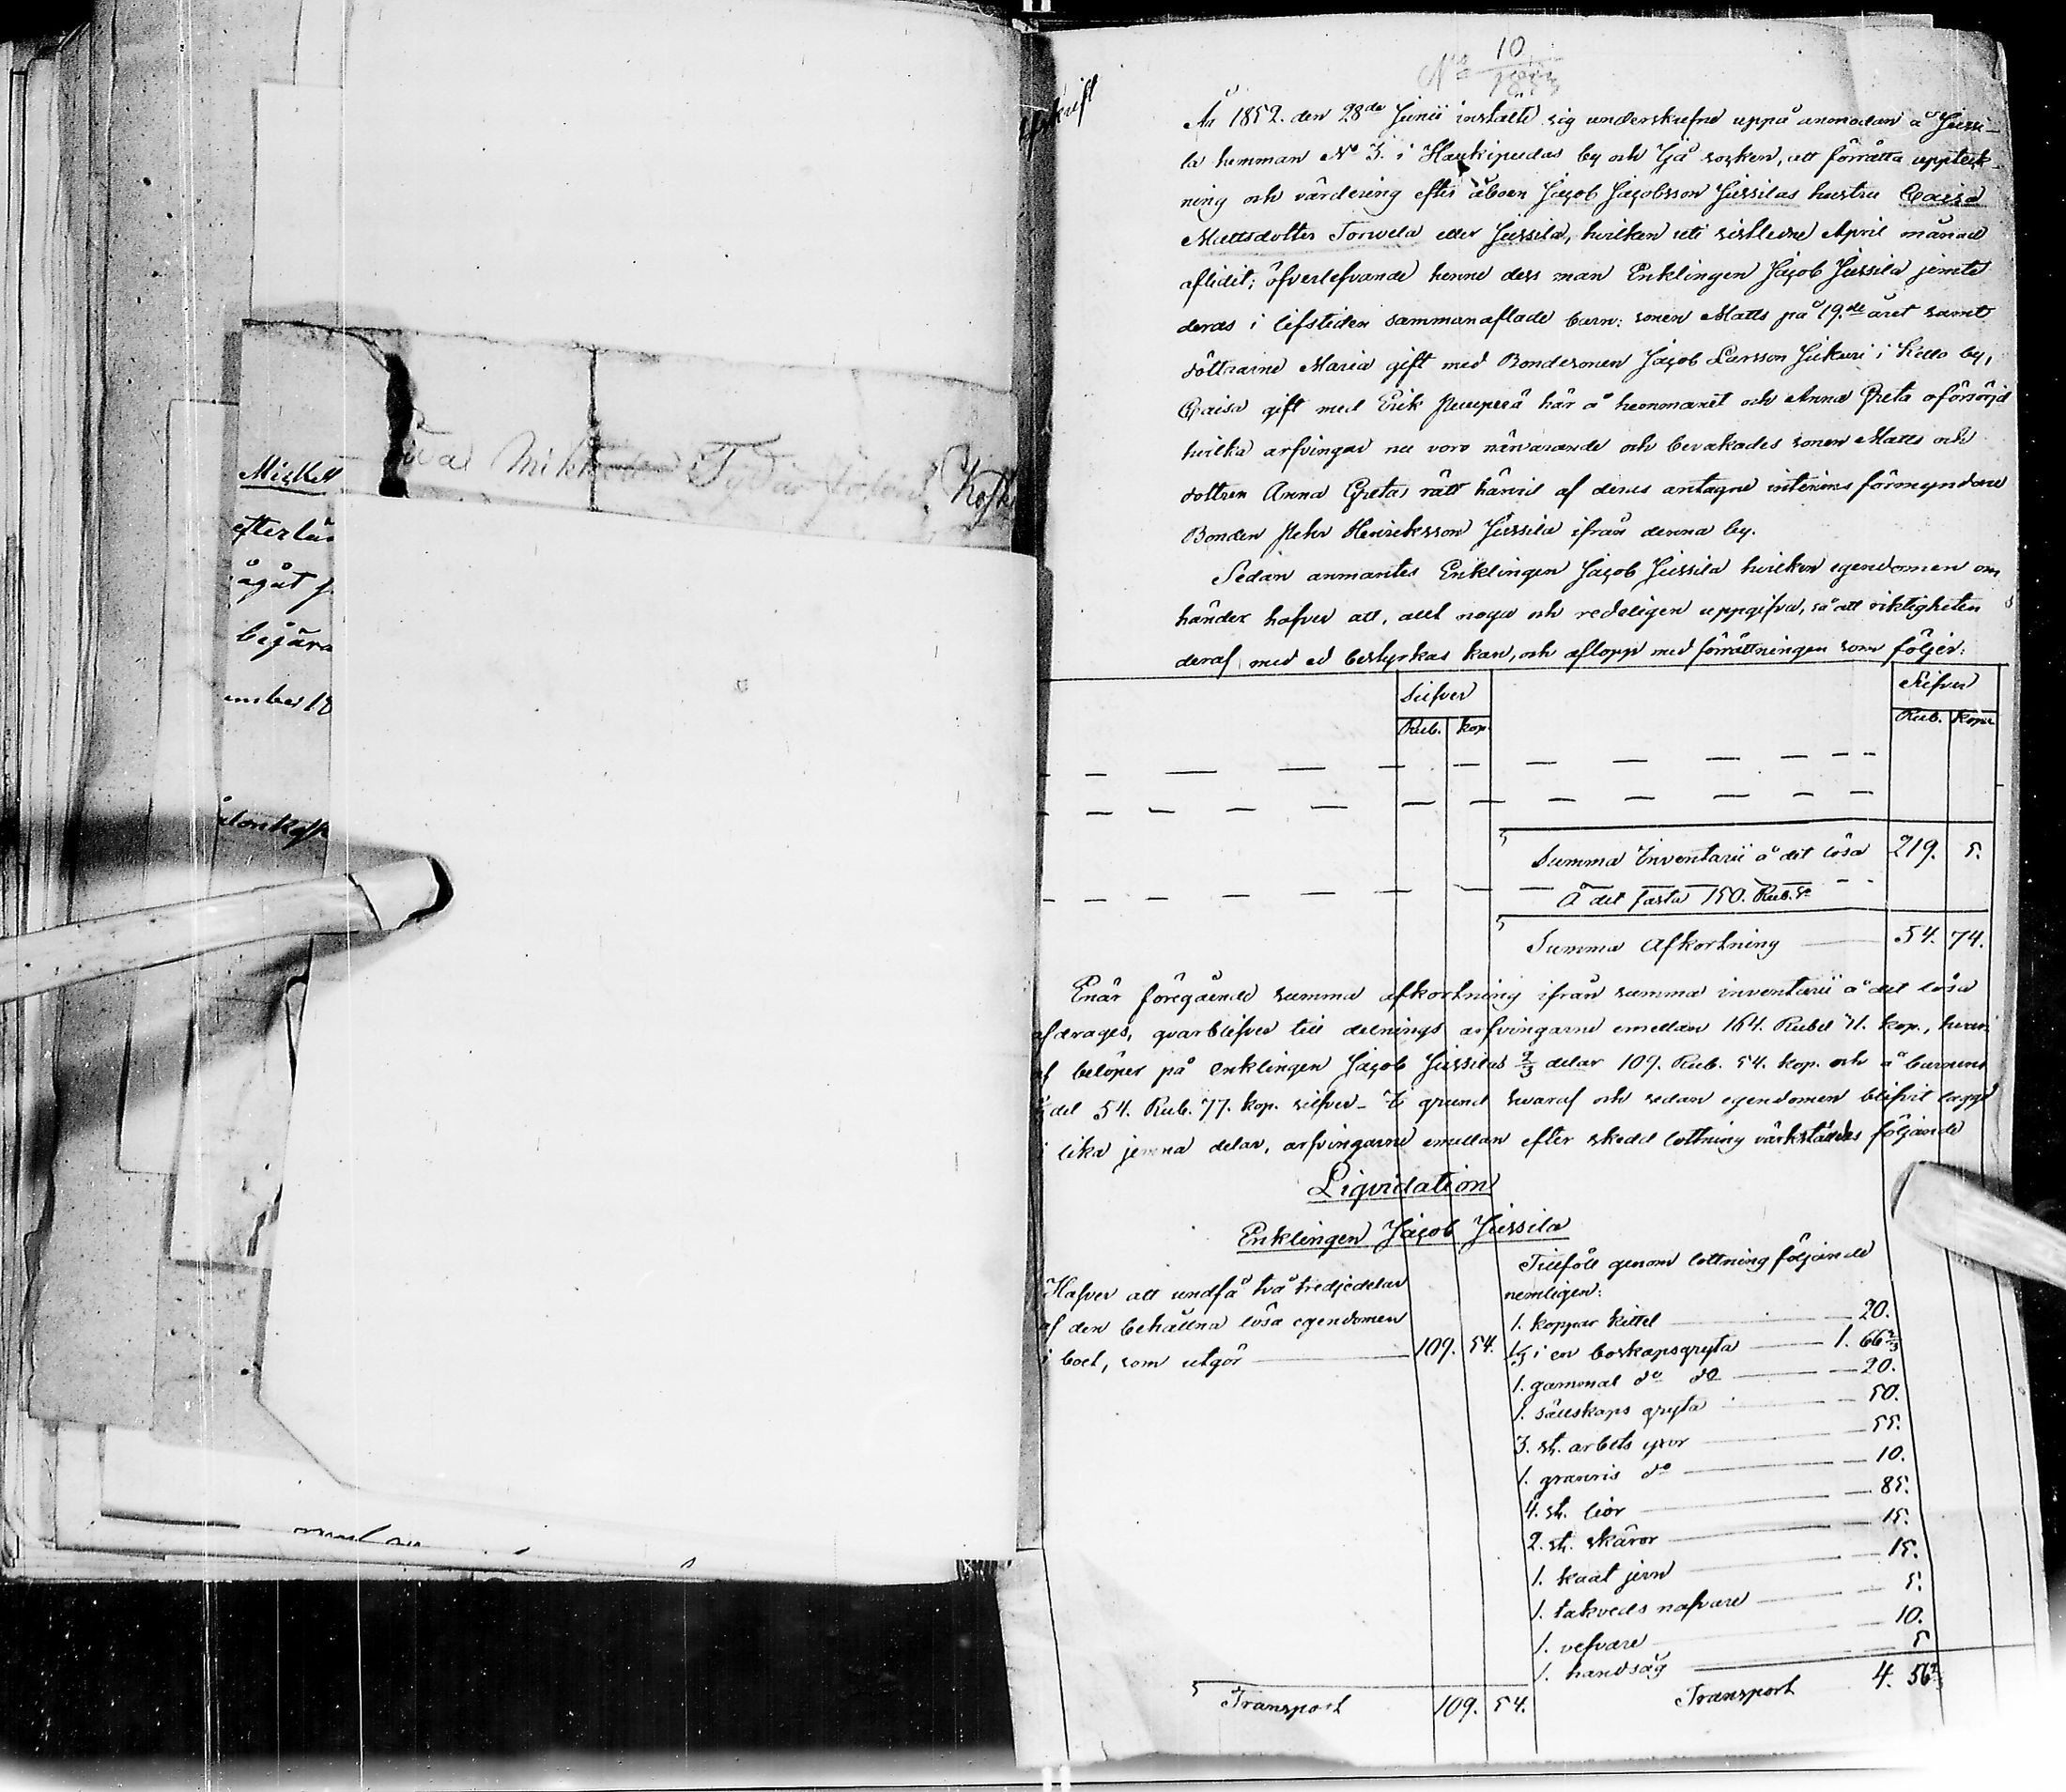 Afskrift
No 10
1853
År 1852. den 28de Junii instälte sig underskrefne uppå anmodan å Jussi-
la hemman No 3. i Haukipudas by och Ijå socken, att förrätta uppteck-
ning och värdering efter åboen Jacob Jacobsson Jussilas hustru Caisa
Mattsdotter Torwela eller Jussila, hvilken uti sistledne April månad
aflidit; öfverlefvande henne dess man Enklingen Jacob Jussila jemte
deras i lifstiden sammanaflade barn: sonen Matts på 19.de året samt
döttrarne Maria gift med Bondesonen Jacob Larsson Jukuri i Kello by,
Caisa gift med Erik här å hemmanet och Anna Greta oförsörjd
hvilka arfvingar nu voro närvarande och bevakades sonen Matts och
dottren Anna Greta rätt härvid af deras antagne interims förmyndare
Bonden Pehr Henriksson Jussila ifrån denna by.
Sedan anmantes Enklingen Jacob Jussila hvilken egendomen om
händer hafver att, allt noga och redeligen uppgifva, så att riktigheten
deraf med ed bestyrkas kan, och aflopp med förrättningen som följer:
Silfver Silfver
Rub. kop. Rub. kop.
Summa Inventarii å det lösa 219. 5.
Å det fasta 150. Rub. S.
Summa Afkortning 54. 74.
Enär föregående summa afkortning ifrån summa inventarii å det lösa
afdrages, qvarblifver till delnings arfvingarne emellan 164. Rubel 71. kop., hvar-
af belöper på enklingen Jacob Jussilas 2/3 delar 109. Rub. 54. kop. och å barnens
1/3 del 54. Rub. 77. kop. silfver - Ti grund hvaraf och sedan egendomen blifvit lagd
i lika jemna delar, arfvingarne emellan efter skedd lottning värkstäldes följande
Liqvidation
Enklingen Jacob Jussila
Hafver att undfå två tredjedelar
af den behållna lösa egendomen
i boet, som utgör 109. 54.
Transport 109. 54.
Tillföll genom lottning följande
nemligen:
1. koppar kittel 20.
1/3 i en boskapsgryta 1. 66 2/3
1. gammal do do 20.
1. sällskaps gryta 50.
3. st. arbets yxor 55.
1. do 10.
4. st. liar 85.
2. st. skäror 15.
1. jern 15.
1. takveds nafvare 5.
1. 10.
1. handsåg 5
Transport 4. 56 2/3
Mickel
efterlä
ågåt
begära
ember 18
Kosk